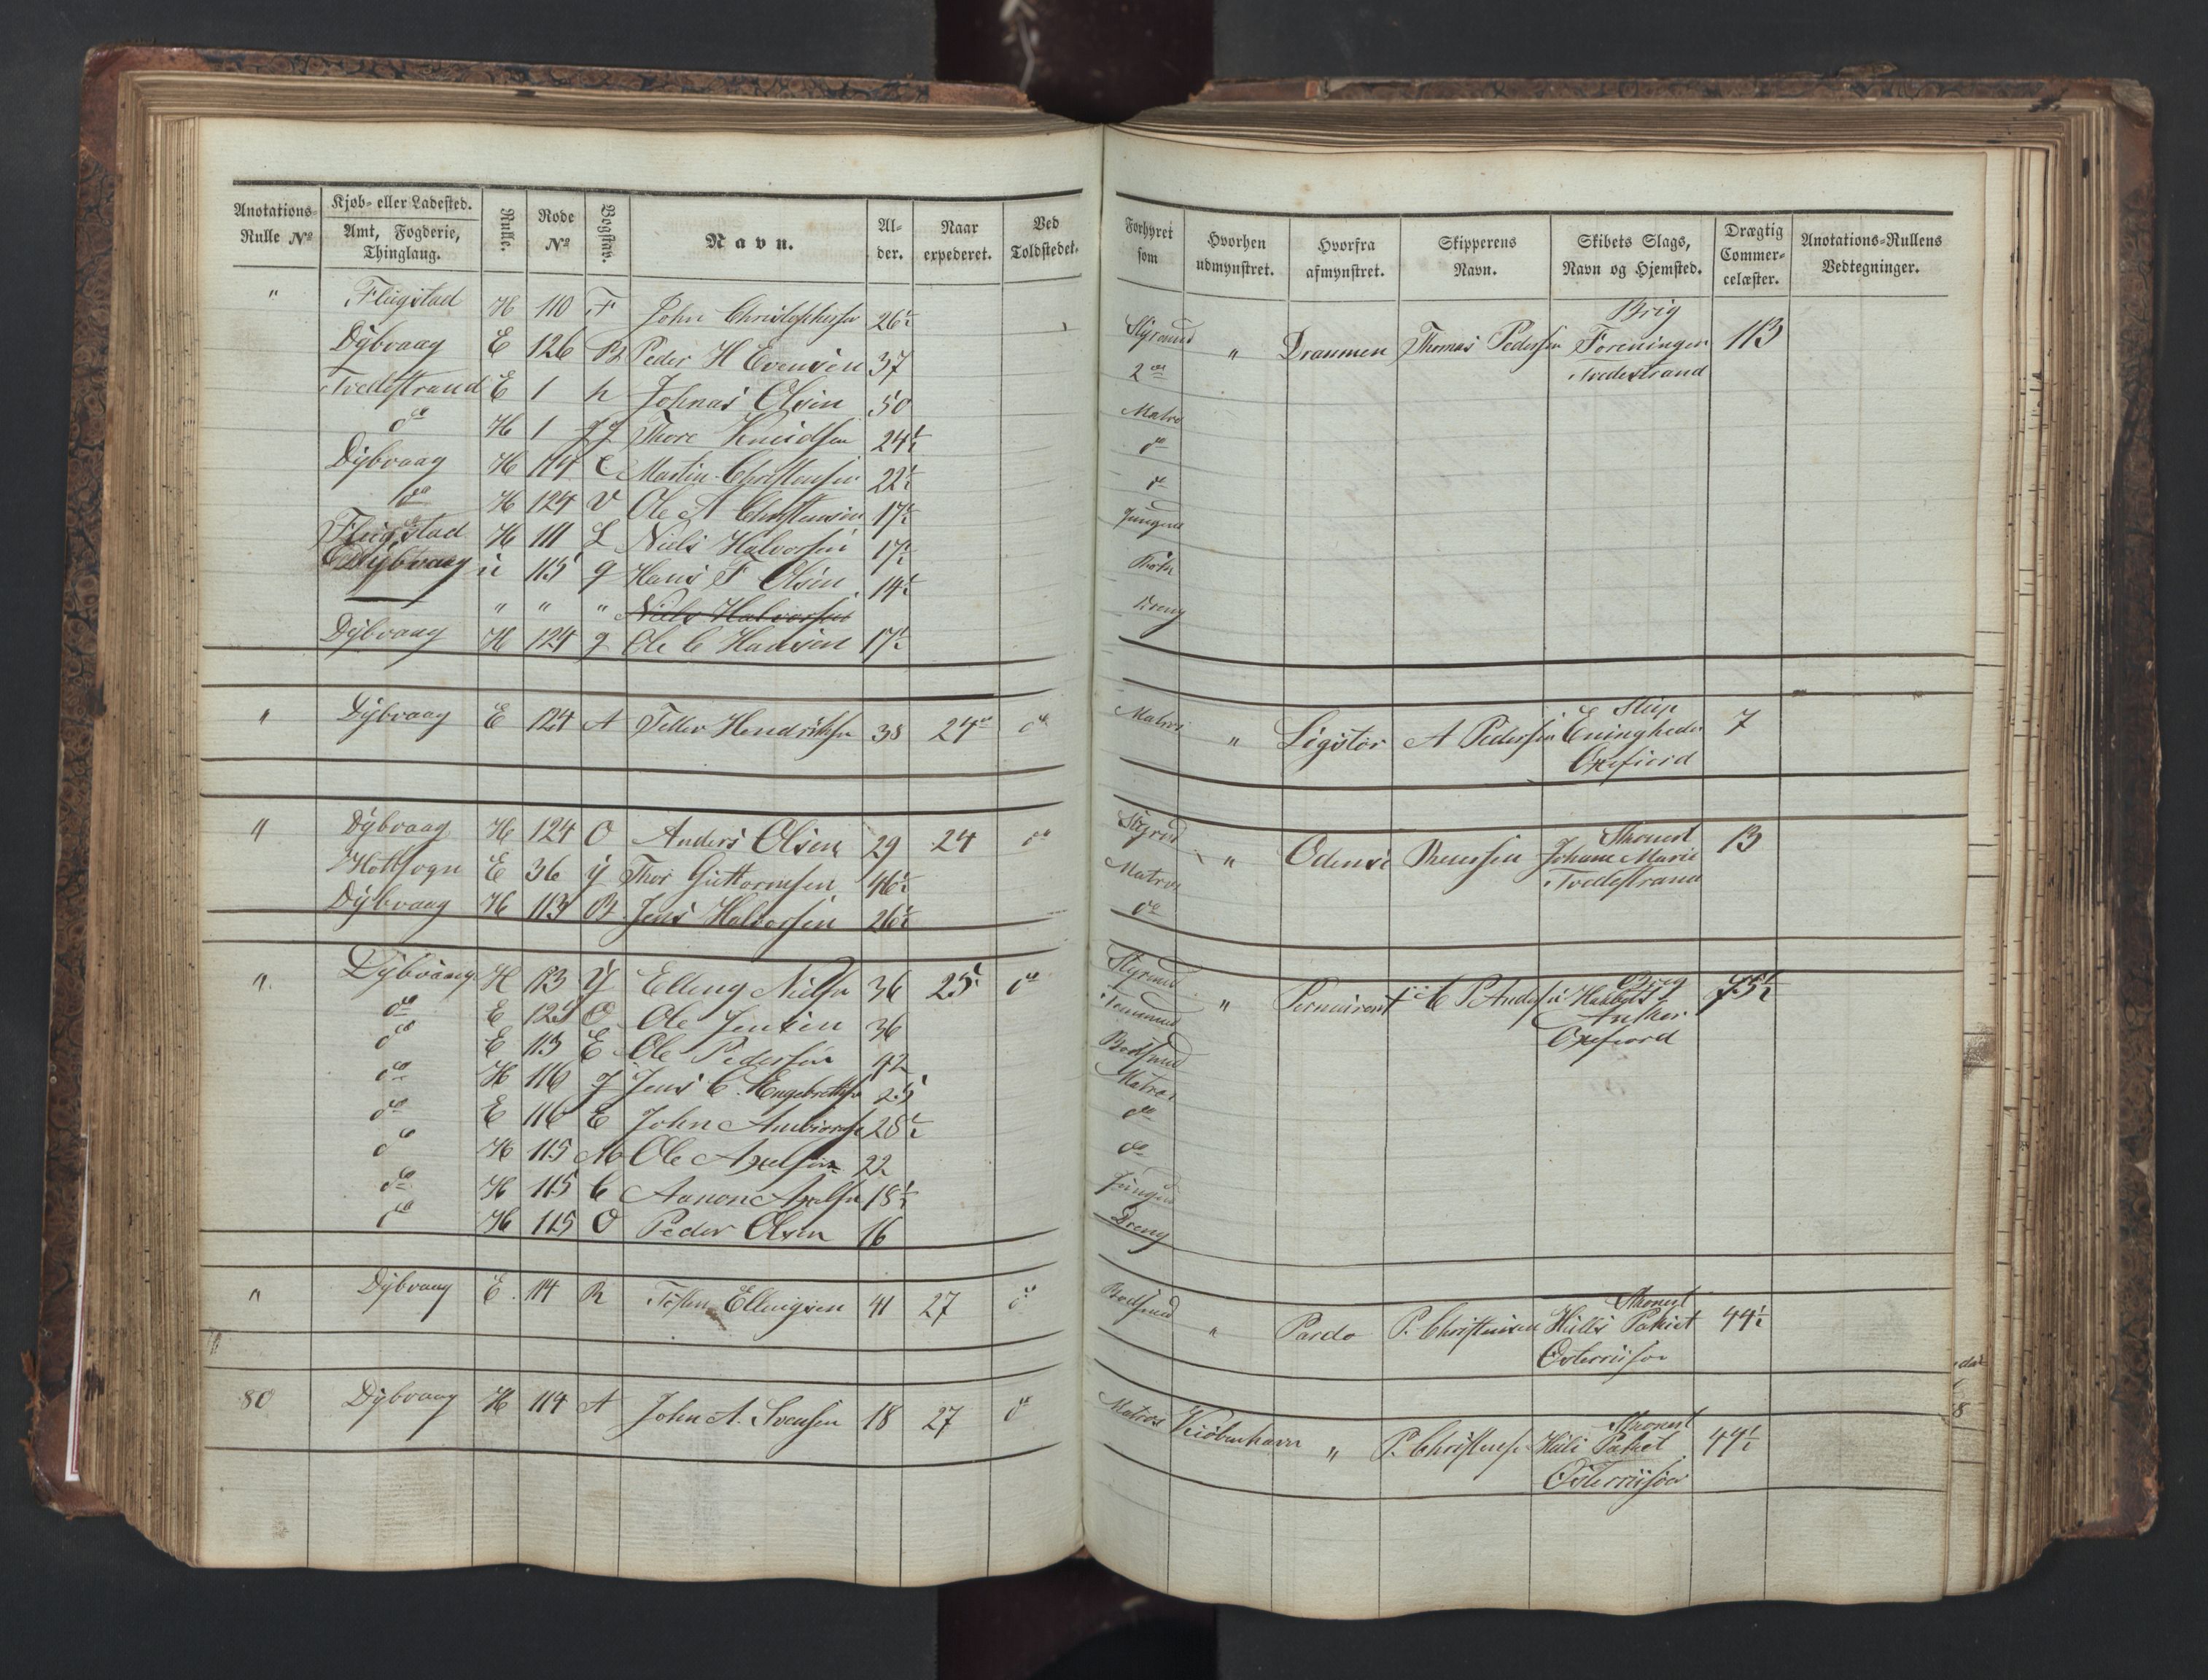 Anotations- Rulle No | Kjøb- eller Ladested. Amt, Fogderie, Thinglaug. | Rulle. | Rode No | Bogstav. | Navn. | Alder. | Naar expederet. | Ved Toldstedet. | Forhyret som | Hvorhen udmynstret. | Hvorfra afmynstret. | Skipperens Navn. | Skibets Slags, Navn og Hjemsted. | Drægtig Commercelæster. | Anotations-Rullens Vedtegninger.
" Flugstad H 110 F John Christophersen 26½ Styrmand " Drammen Thomas Pedersen Brig Foreningen Tvedestrand 113
Dybvaag E 126 B Peder H Evensen 37 2den
Tvedestrand E 1 h Johnas Olsen 50 Matros
do H 1 Thore Knudsen 24½ do
Dybvaag H 114 C Martin Christensen 22½ do
do H 124 V Ole A Christensen 17½ Jungmd
Flugstad H 111 L Niels Halvorsen 17½
Dybvaag ii 115 q Hans F Olsen 14½ Kok
" " " Niels Halvorsen Dreng
Dybvaag H 124 q Ole C Hansen 17½
" Dybvaag E 124 A Teller Hendriksen 38 24de do Matros " Ligstør A Pedersen Slup Eenigheden Oxefiord 7
" Dybvaag H 124 O Anders Olsen 29 24 do Styrmd " Odense Skonert Johane Marie Tvedestrand 13
Holt sogn E 36 ÿ Thor Guttormsen 46½ Matros
Dybvaag H 113 Jens Halvorsen 26½ do
" Dybvaag H 113 Y Elling Nielsen 36 25 do Styrmd " C P Andersen Brig Haabets Anker Oxefiord 75½
do E 124 O Ole Jensen 36 Tømmermd
do E 113 E Ole Pedersen 42 Bodsmd
do H 116 J Jens C. Engebretsen 25 Matros
do E 116 E John 28½ do
do H 115 M Ole Axelsen 22 do
do H 115 C Aanon Axelsen 18½ Jungmd
do H 115 O Peder Olsen 16 Dreng
" Dybvaag E 114 R Tosten Ellingsen 41 27 do Bodsmd " P. Christensen Skonert Hulls Pakket Østerriisøer 44½
80 Dybvaag H 114 A John A. Svensen 18 27 do Matros Kiøbenhavn " P. Christensen Skonert Hulls Pakket Østerriisøer 44½